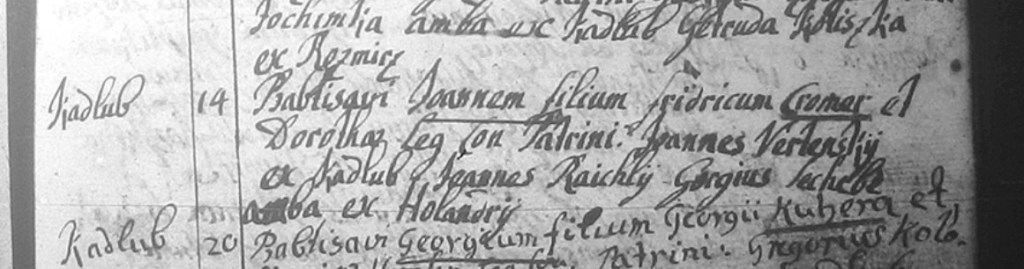 Jochimkja amba ex Kadlub Getruda Koliszka
ex Rozmicz
Kadlub 14 Babtisavi Joannem filium fridricum Cromer et
Dorothaz leg Con Patrini: Joannes Vertenskij
ex Kadlub Joannes Raichlij Gorgius
amba ex Holandrij
Kadlub 20 Babtisavi Georgium filium Georgii Kuhera et
Patrini: Gregorius Kolo.